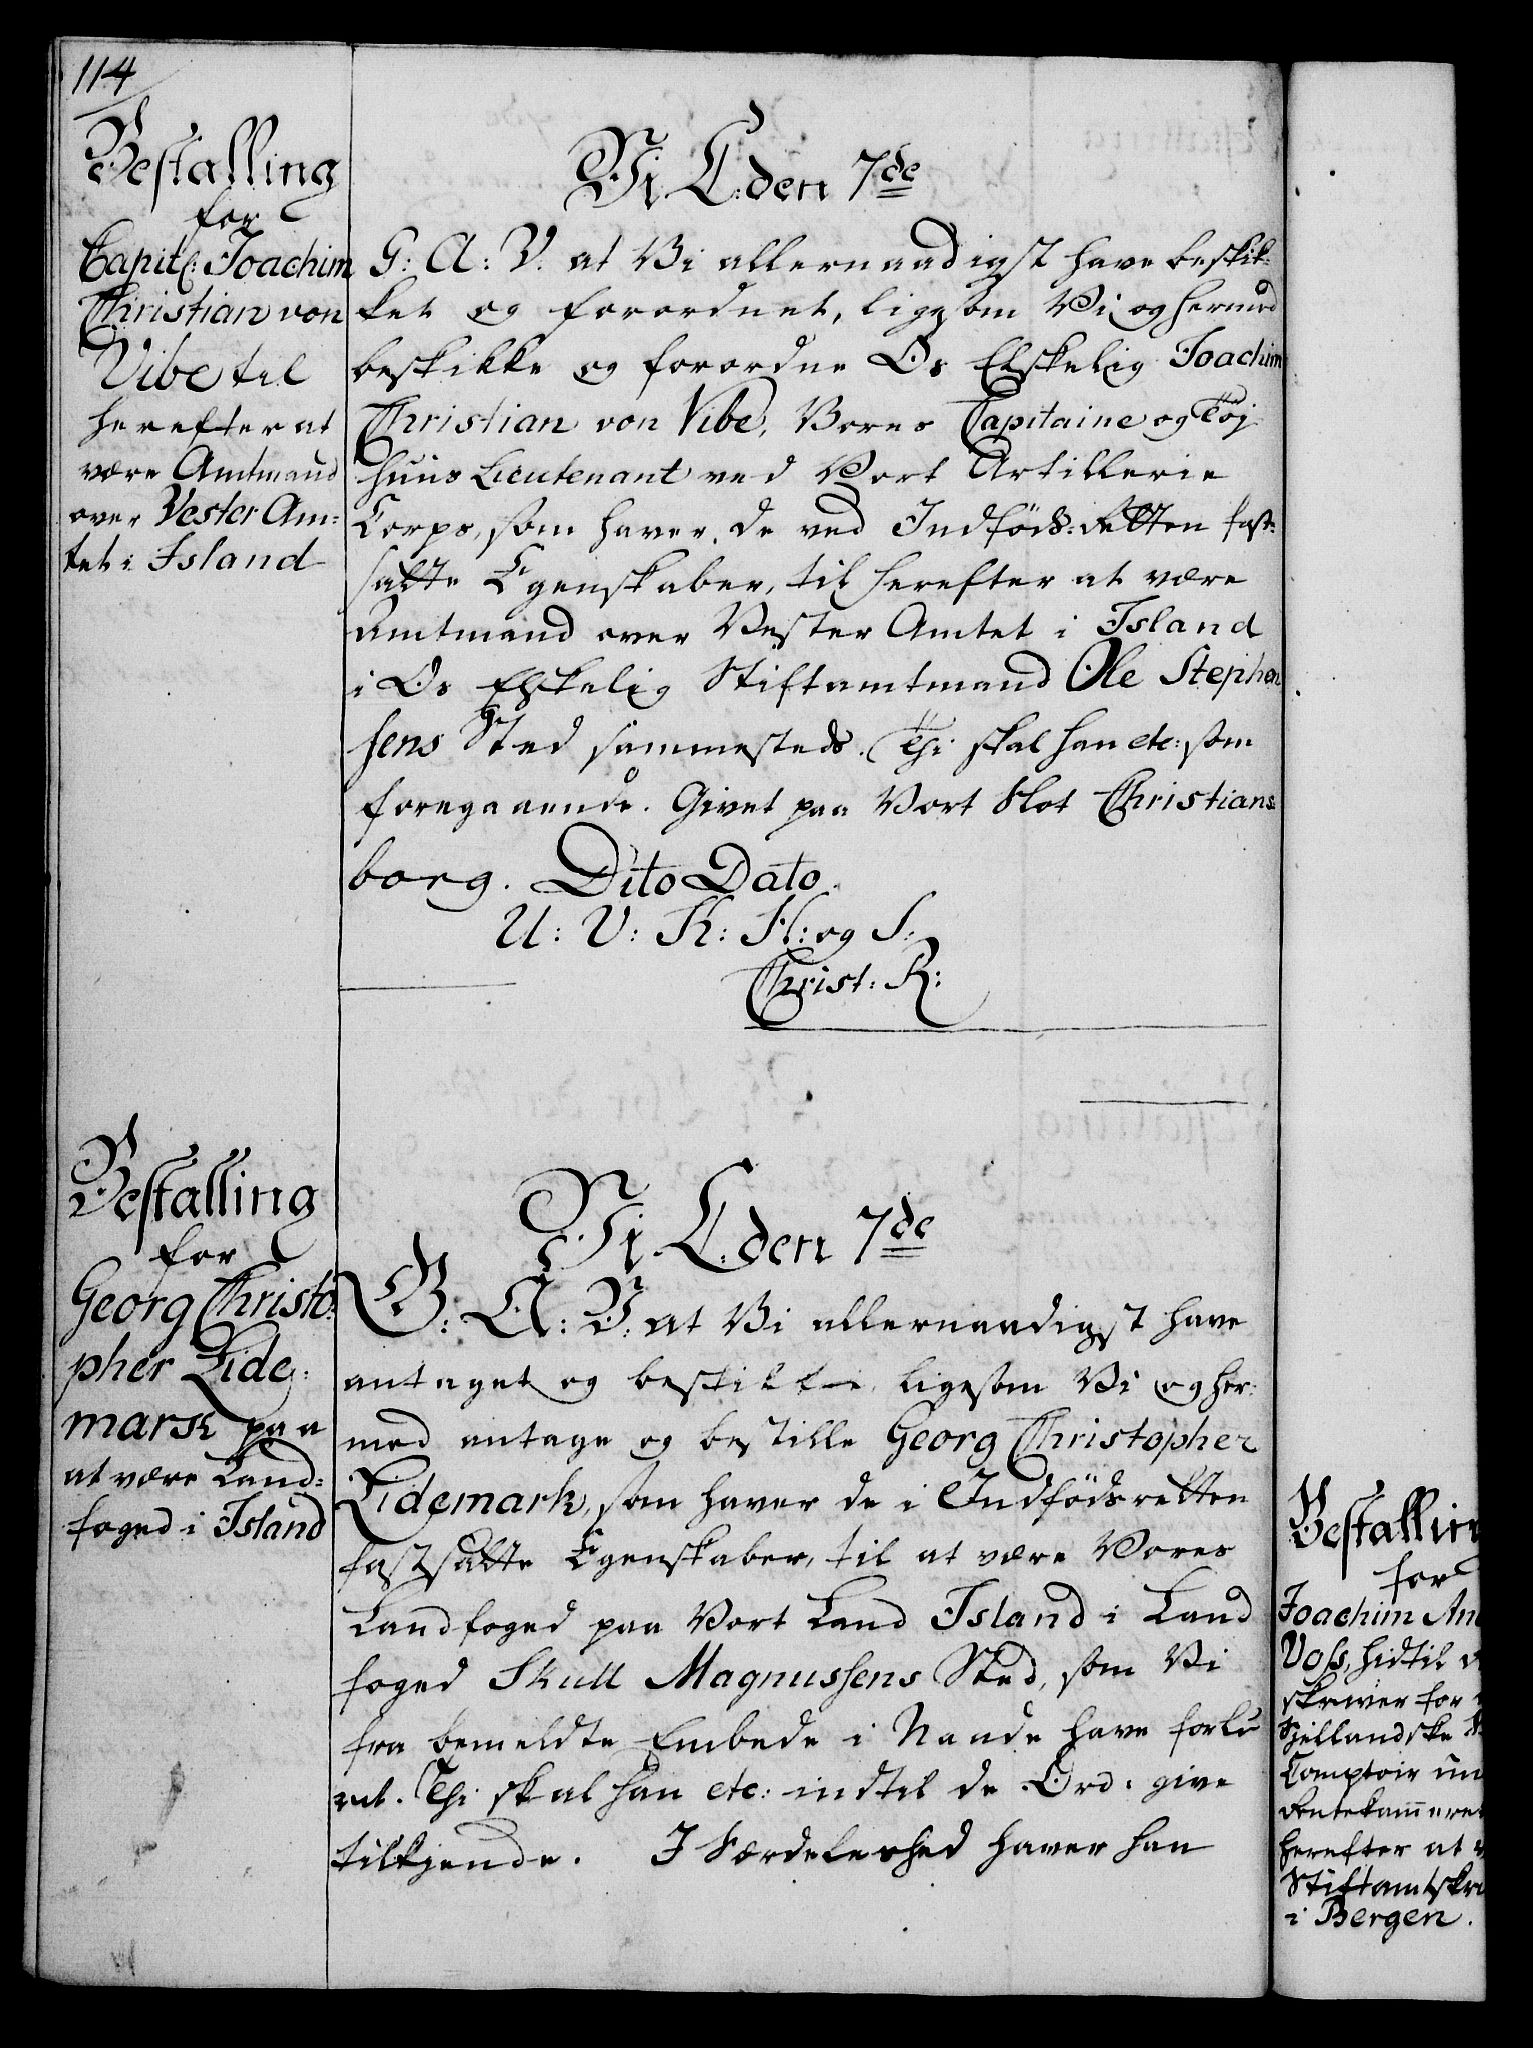 114
Bestalling
for
Capit: Joachim
Christian von
Vibe til
herefter at
være Amtmand
over Vester Am=
tet i Island
Vi C: den 7de
G: A: V: at Vi allernaadigst have beskik=
ket og forordnet, ligesom Vi og hermed
beskikke og forordne Os Elskelig Joachim
Christian von Vibe, Vores Capitaine og Töj
huus Lieutenant ved Vort Artillerie
Corps, som haver de ved Indföds=Retten fast=
satte Egenskaber, til herefter at være
Amtmand over Vester Amtet i Island
i Os Elskelig Stiftamtmand Ole Stephen
sens Sted sammesteds. Thi skal han etc: som
foregaaende. Givet paa Vort Slot Christians=
borg. Dito Dato.
U: V: K: H: og S:
Christ: R:
Bestalling
for
Georg Christo=
pher Lide=
mark paa
at være Land=
foged i Island
Vi C: den 7de
G: A: V: at Vi allernaadigst have
antaget og bestilt, ligesom Vi og her=
med antage og bestille Georg Christopher
Lidemark, som haver de i Indfödsretten
fastsatte Egenskaber, til at være Vores
Landfoged paa Vort Land Island i Land
foged Skull Magnussens Sted, som Vi
fra bemeldte Embede i Naade have forlö
vet. Thi skal han etc: indtil de Ord: give
tilkjende. I Særdeleshed haver han
Bestallin
for
Joachim An
Voss, hidtil
skriver for
Siellandske
Comptoir un
Rentekammeret
herefter at v
Stiftamtskri
i Bergen.